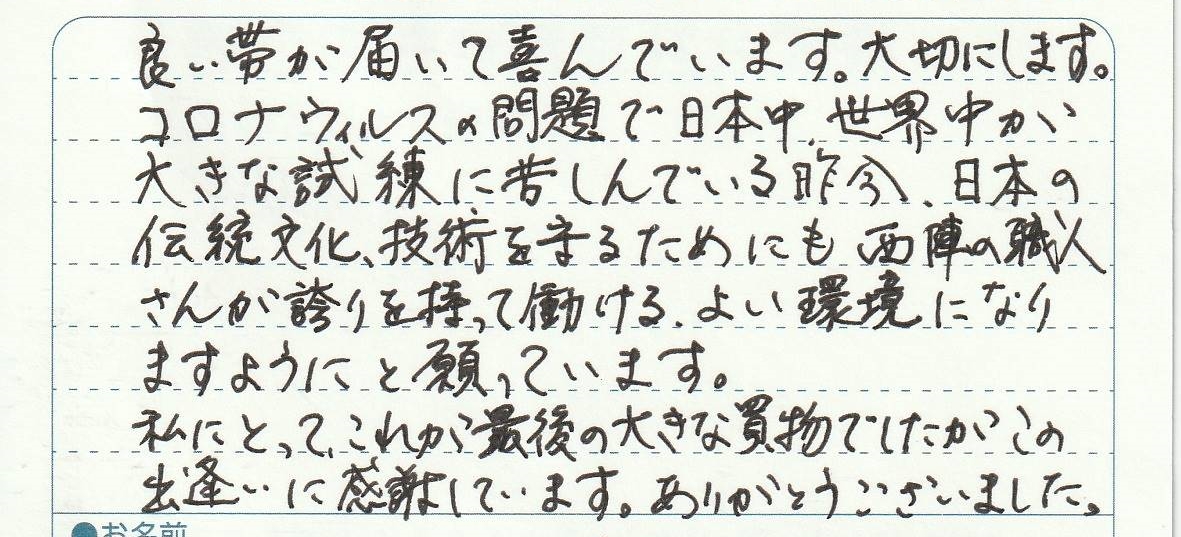 良い帯が届いて喜んでいます。大切にします。
コロナウィルスの問題で日本中、世界中が
大きな試練に苦しんでいる昨今、日本の
伝統文化、技術を守るためにも西陣の職人
さんが誇りを持って働ける、よい環境になり
ますようにと願っています。
私にとって、これが最後の大きな買物でしたがこの
出逢いに感謝しています。ありがとうございました。
●お名前